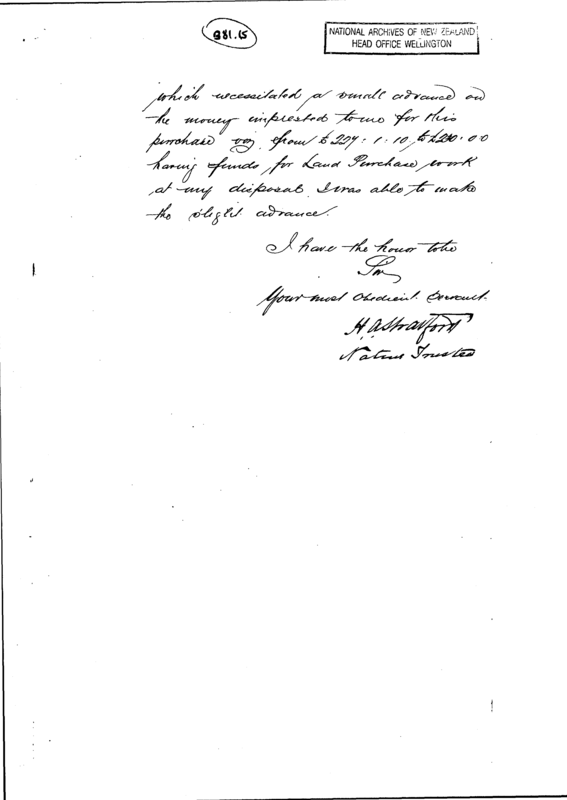 981.15
NATIONAL ARCHIVES OF NEW ZEALAND
HEAD OFFICE WELLINGTON
which necessitated a small advance on
the money imprested to me for this
purchase viz. from £227. 1. 10, to £230. 0 0
having funds, for Land Purchase, work
at my disposal I was able to make
the slight advance.
I have the honor to be
Sir
Your most Obedient. Servant.
H. A. Stratford
Native Trustee